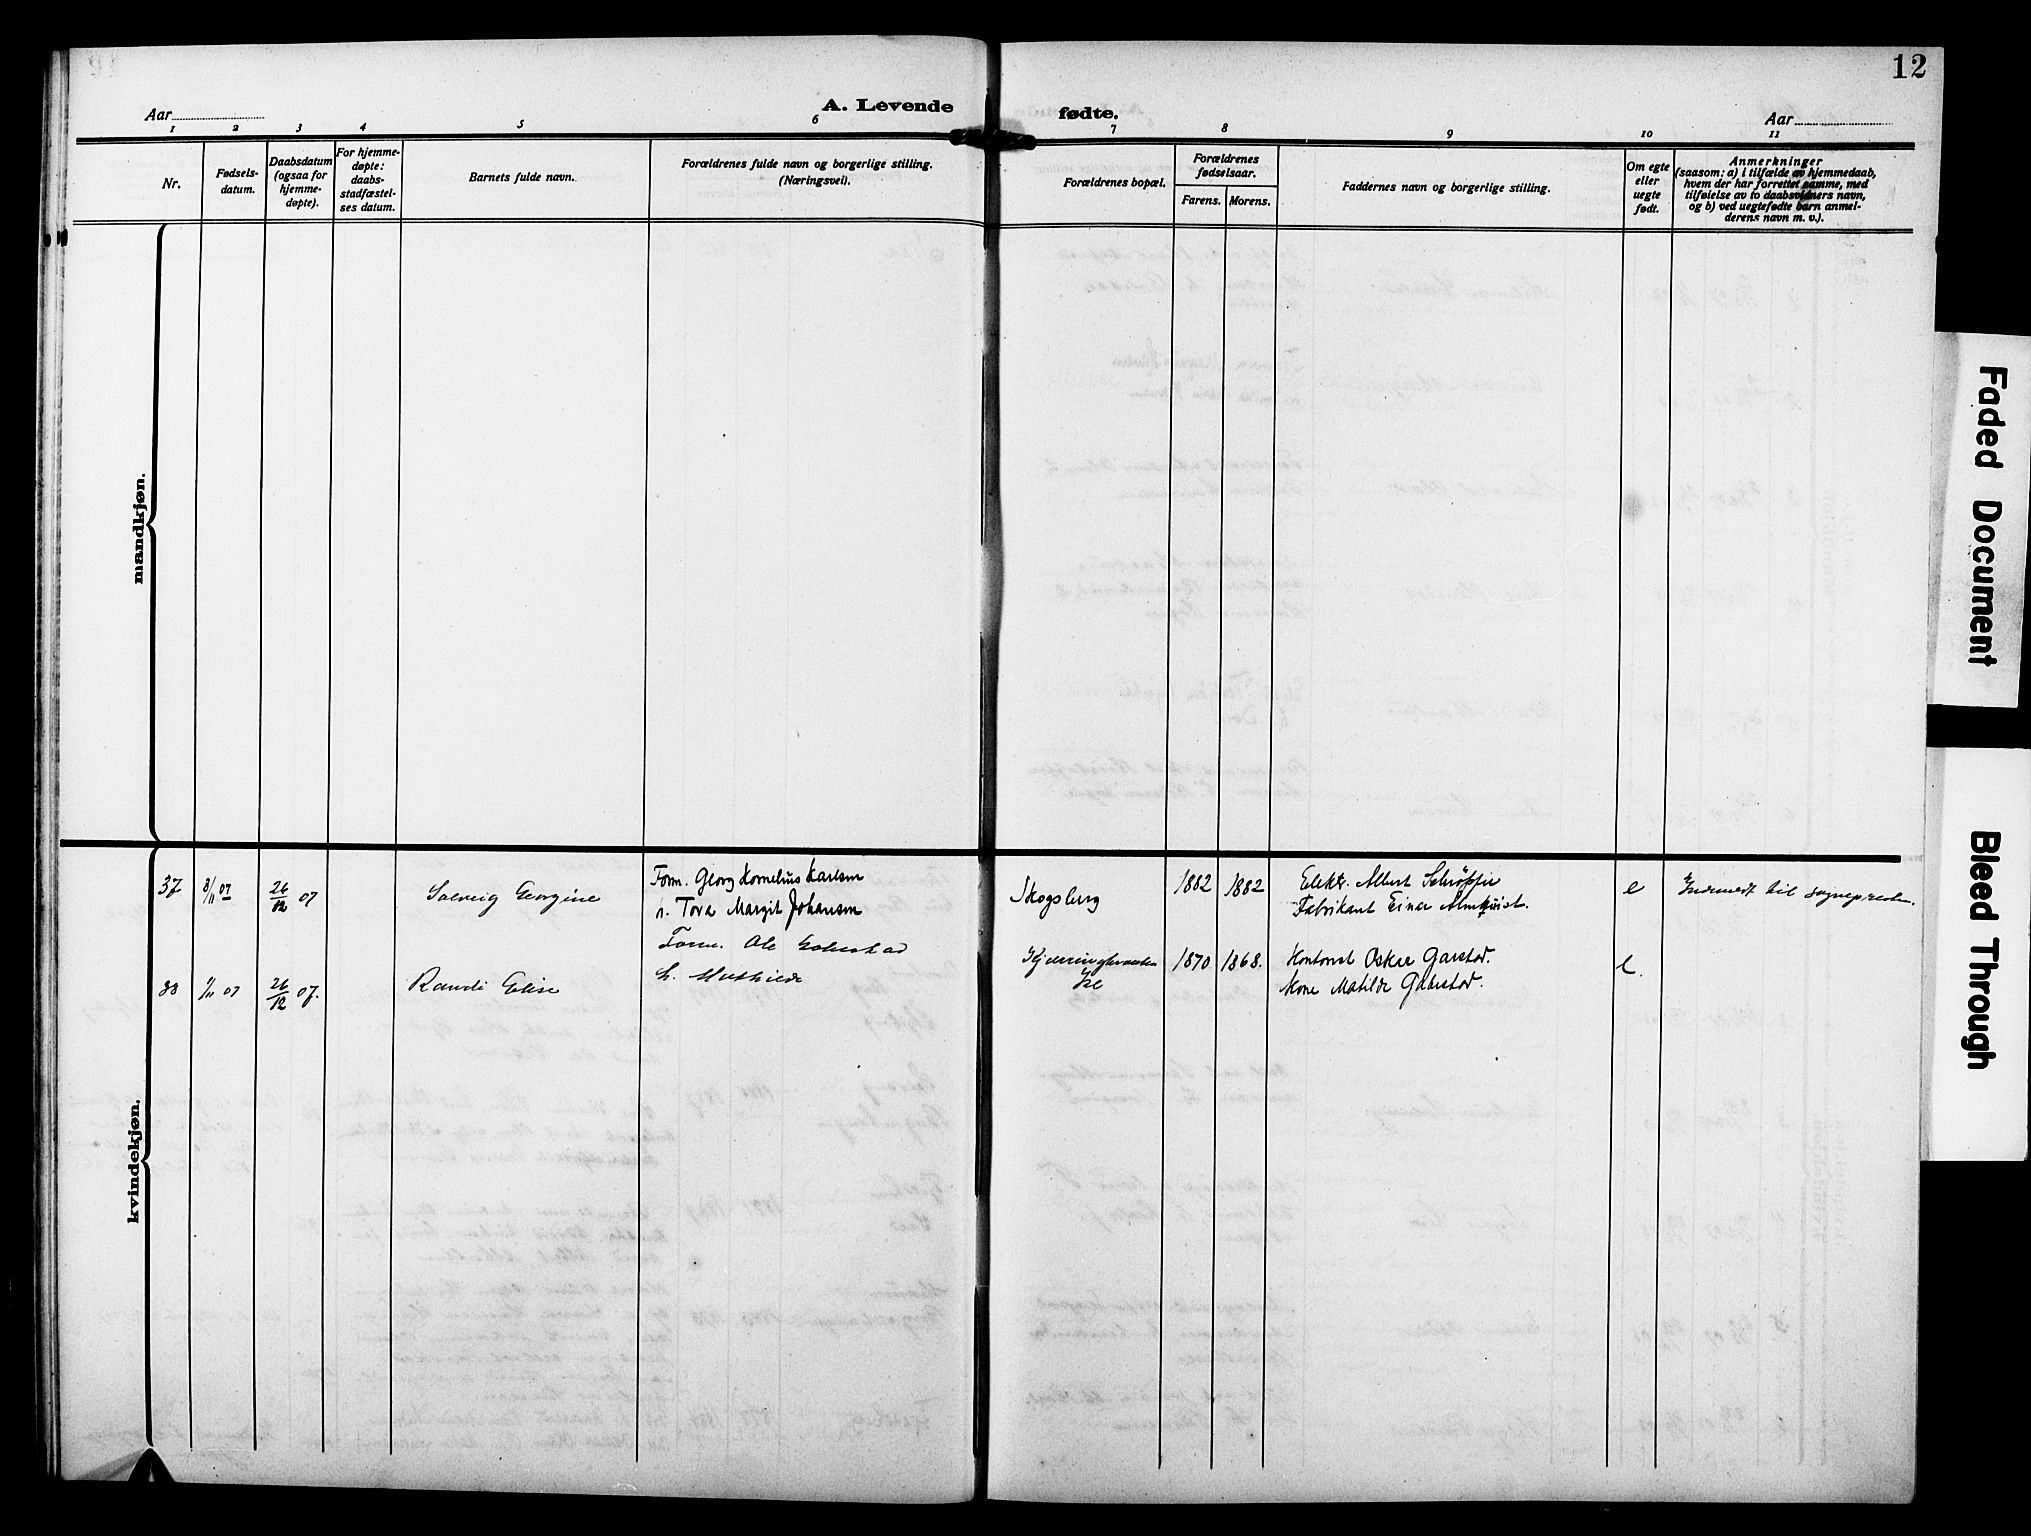 12
A. Levende
fødte.
Aar
Aar
1 2 3 4 5 6 7 8 9 10 11
Nr.
Fødsels-
datum.
Daabsdatum
(ogsaa for
hjemme-
døpte).
For hjemme-
døpte:
daabs-
stadfæstel-
ses datum.
Barnets fulde navn.
Forældrenes fulde navn og borgerlige stilling.
(Næringsvei).
Forældrenes bopæl.
Forældrenes
fødselsaar.
Farens. Morens.
Faddernes navn og borgerlige stilling.
Om egte
eller
uegte
født.
Anmerkninger
(saasom: a) i tilfælde av hjemmedaab,
hvem der har forrettet samme, med
tilføielse av to daabsvidners navn,
og b) ved uegtefødte barn anmel-
derens navn m. v.).
mandkjøn.
kvindekjøn.
37 8/11 07 26/12 07 Solveig Georgine
Form. Georg Kornelius Karlsen
h. Tora Margit Johansen
Skogsberg 1882 1882
Elektr. Albert
Fabrikant Einar Almquist.
e
Indmeldt til sognepresten.
38 /11 07 26/12 07. Randi Elise
Form. Ole
h. Mathilde
1870 1868.
Kontorist Oskar Garstad.
Kone Matilde
e.
Faded Document
Bleed Through